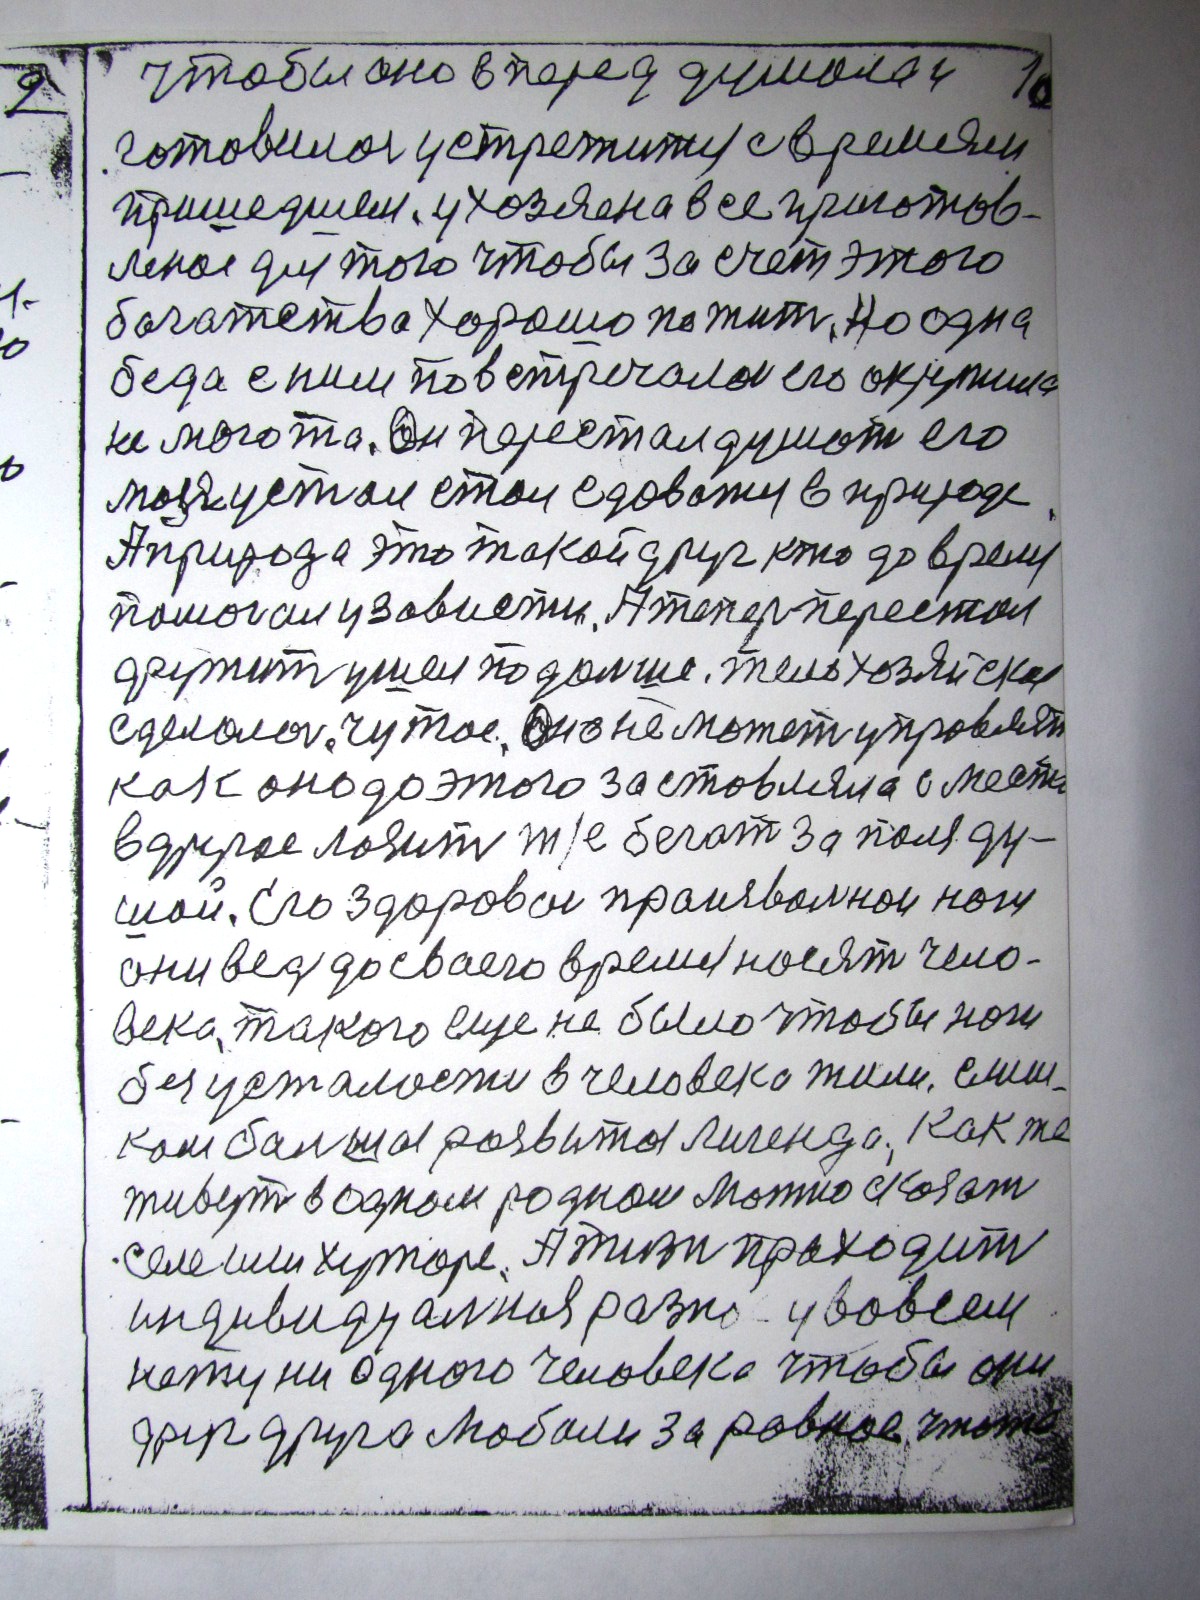 9
чтобы оно в перед думола и 10
готовилоя устретиту с времями
пришедшем. у хозяена все пригото-
леное для того чтобы за счет этого
богатства хорошо пожит. Но одна
беда с ним повстречалоя его окружила
не могота. Он перестал думот его
мозг устал стал сдоватя в природе.
А природа это такой друг кто до время
помогал у зовисти. А тепер перестал
дружит ушел подалше. тело хозяйскоя
сделолоя. чутое. Оно не может упровлят
как оно до этого застовляла с места
в другое лозит т/е бегат за поля ду-
шой. Его здоровои произволнои ноги
они вед до своего время носят чело-
века, такого еще не было чтобы ноги
без усталости в человека жили. слиш-
ком балшая розвитоя лигенда. Как же
живут в одном родном можно сказат
селе или хуторе. А тизн проходит
индивидуалноя разно у вовсем
нету ни одного человека чтобы они
друг друга любили за ровное. чтоте